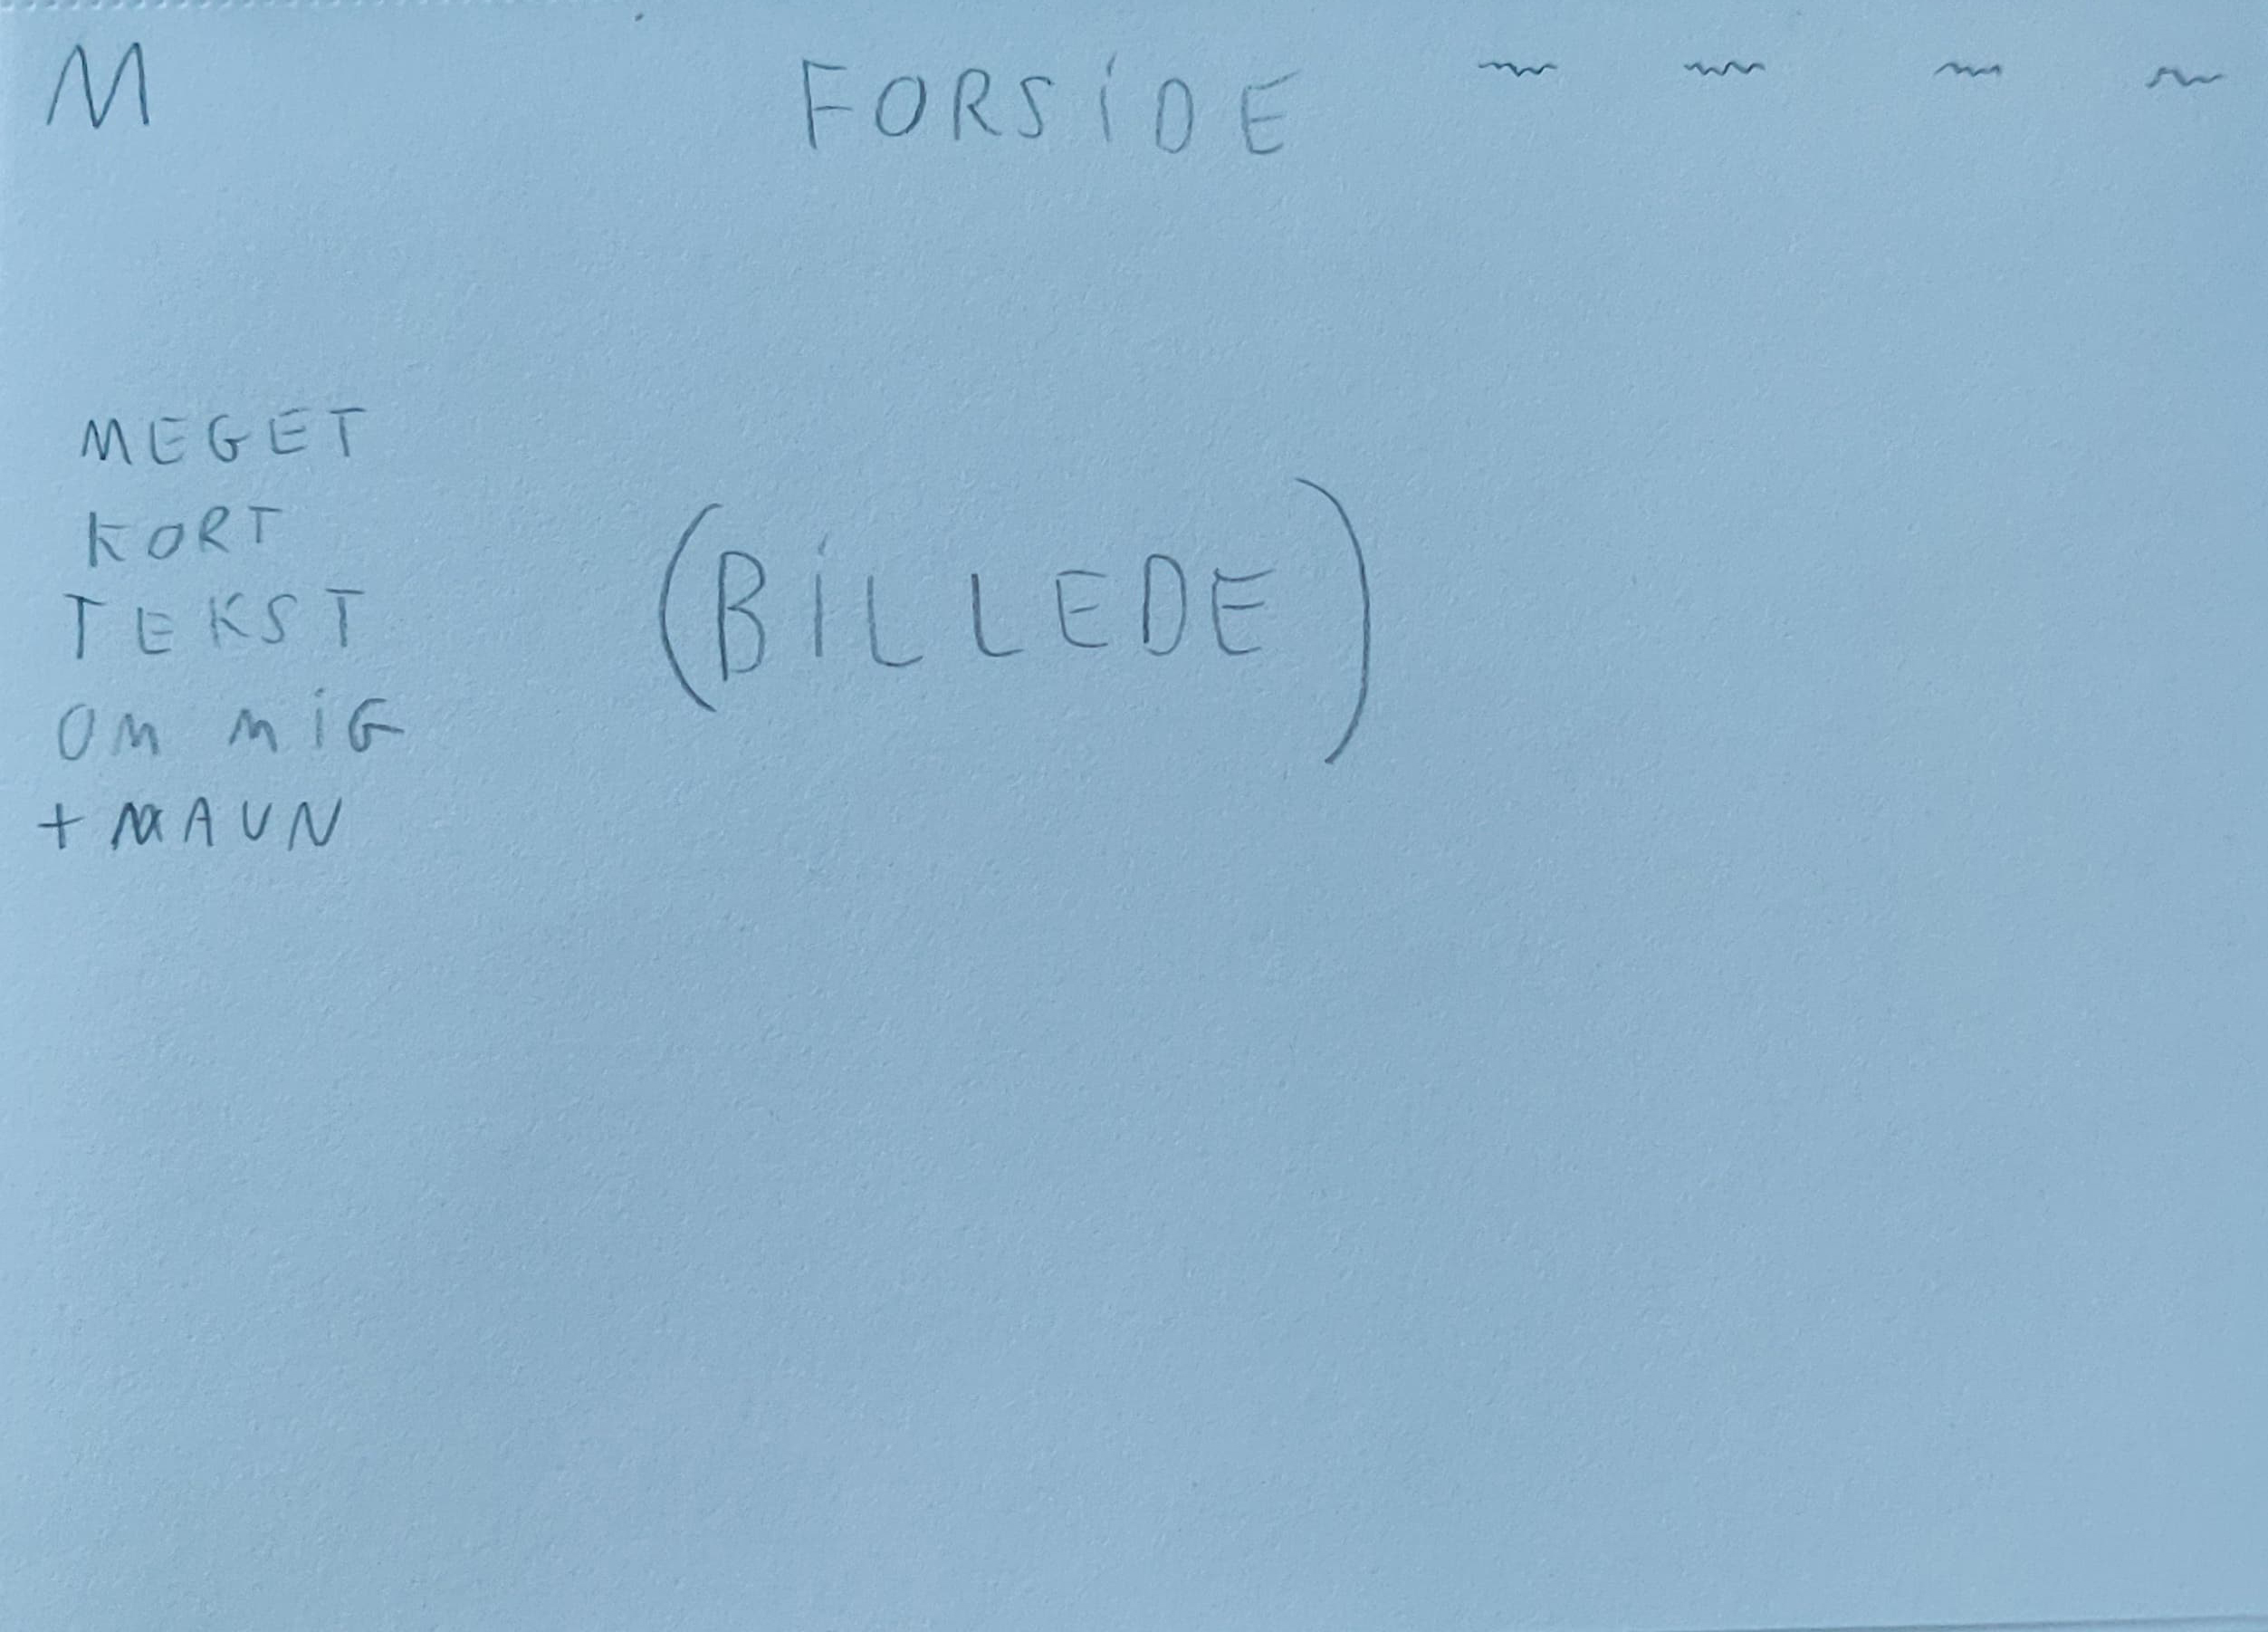 M FORSIDE
MEGET
KORT
TEKST
OM MIG
+ NAVN
(BILLEDE)